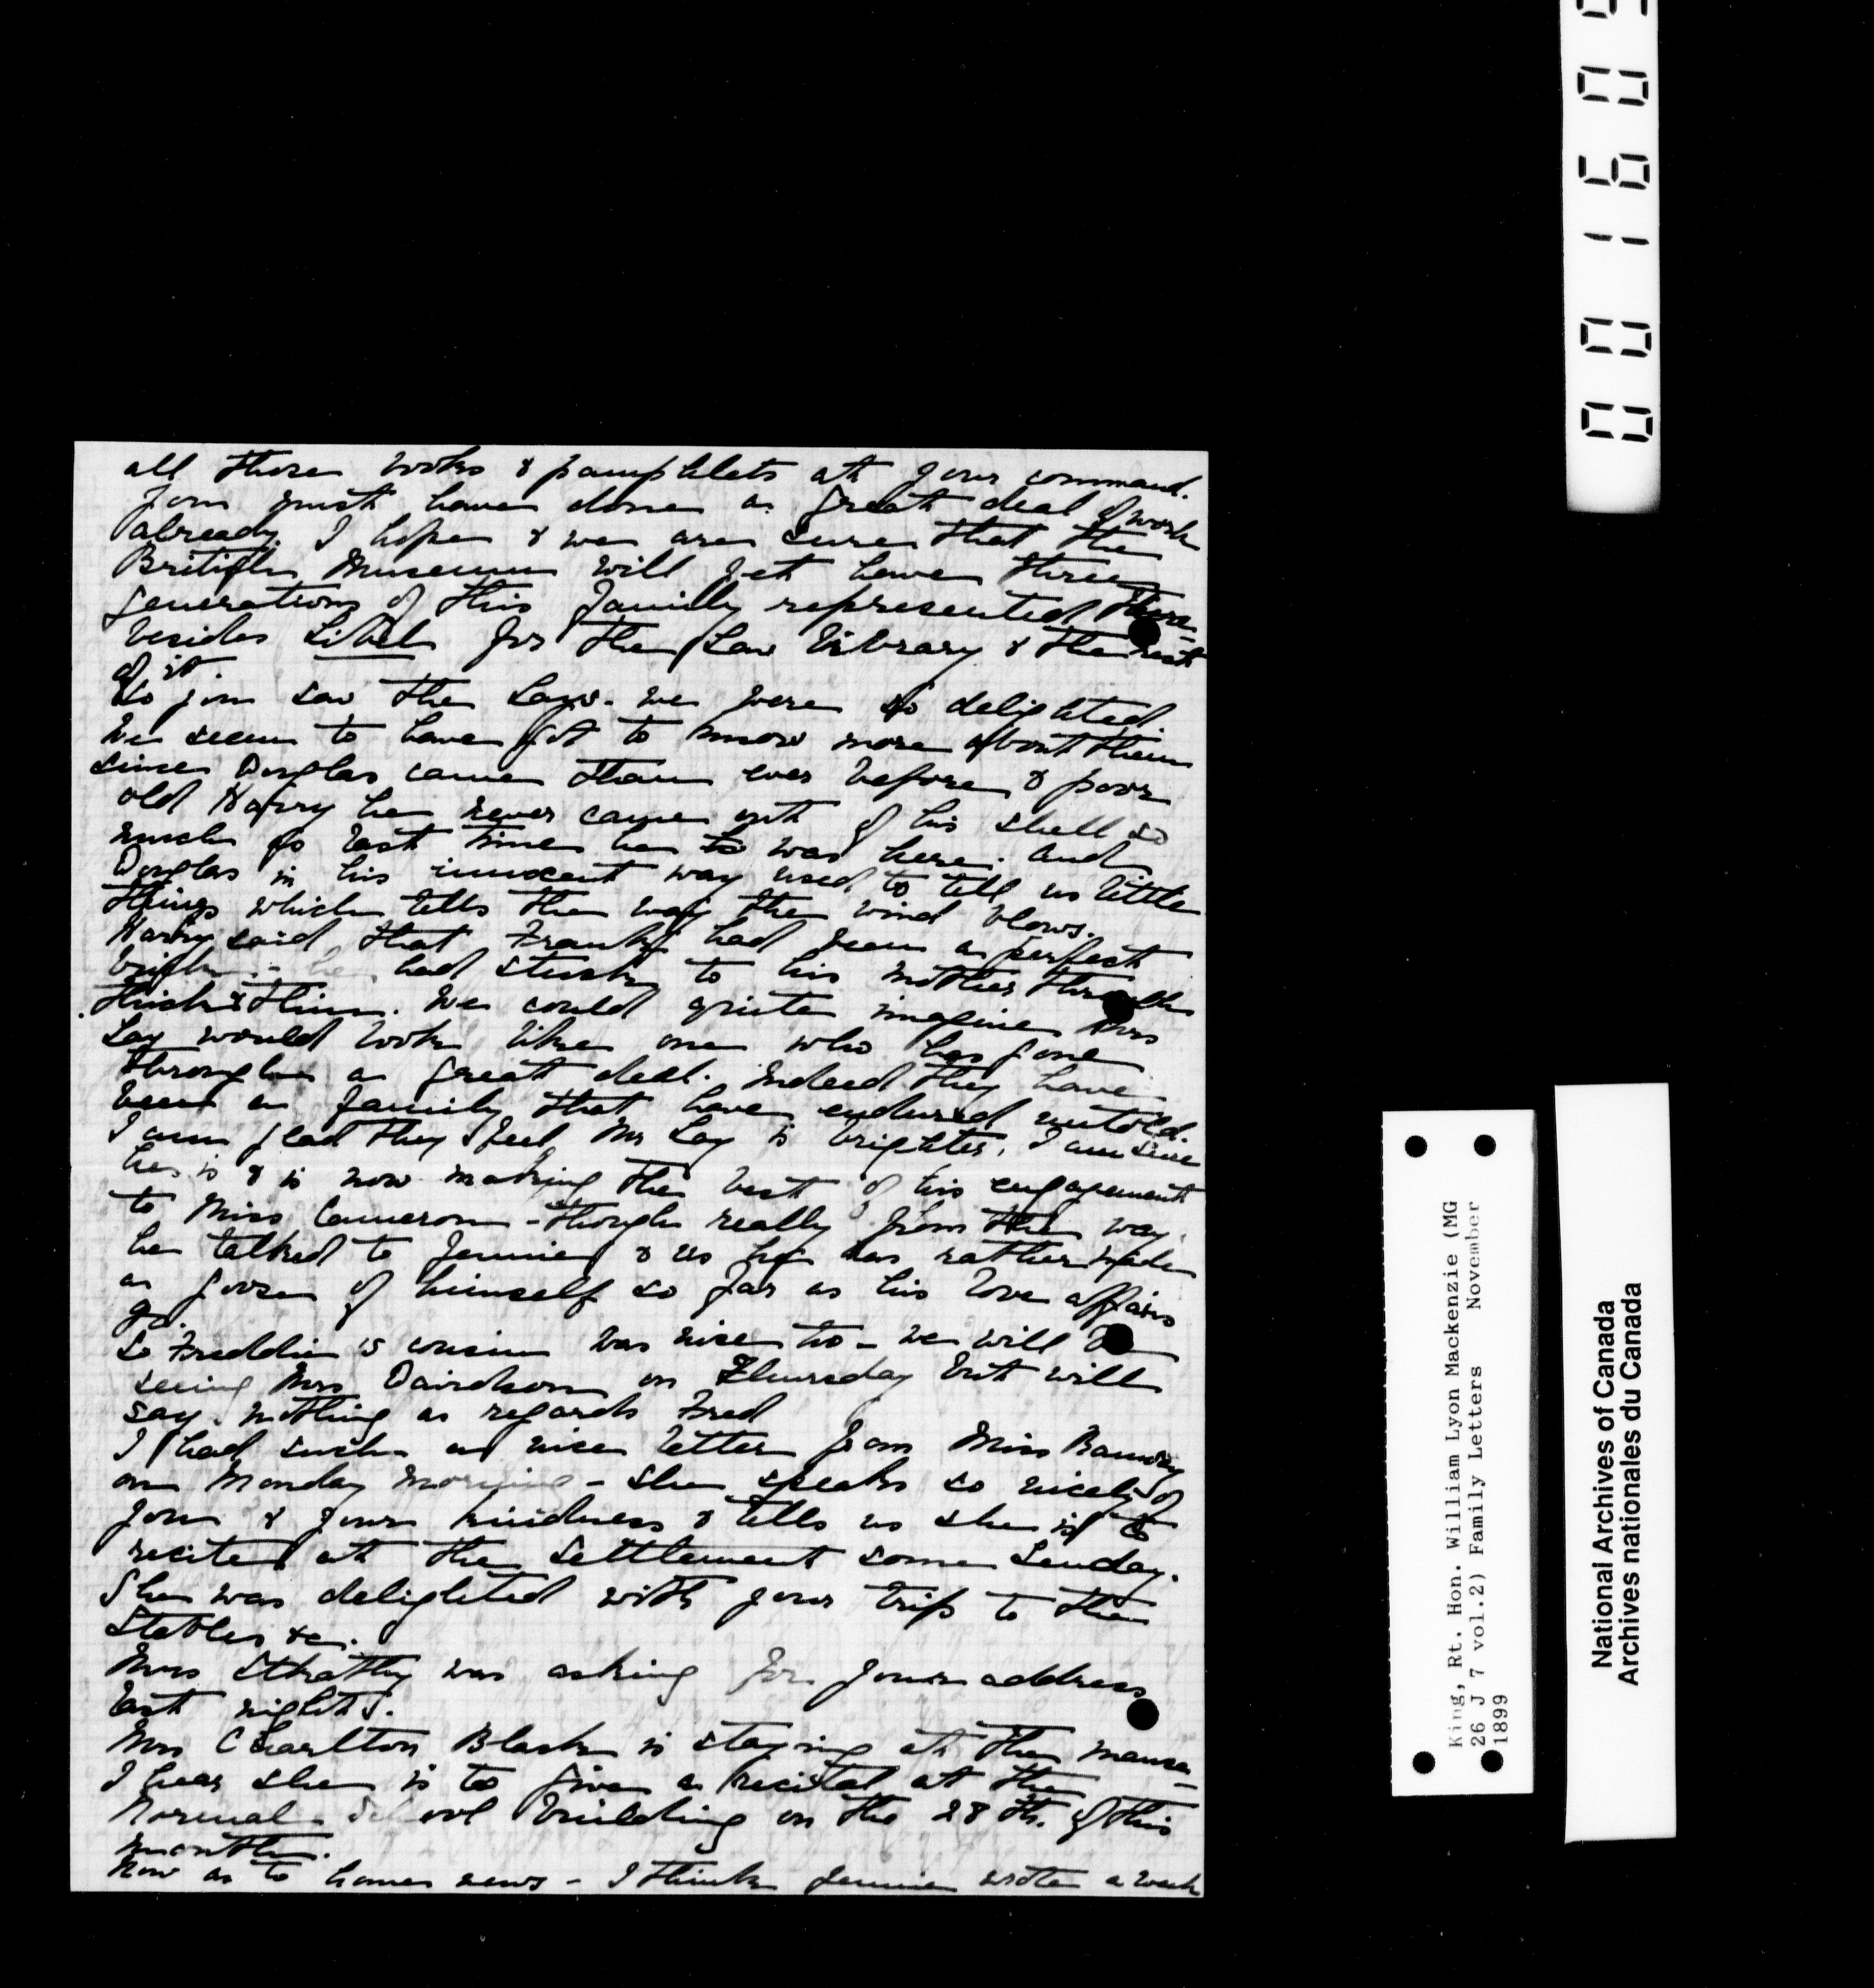 all those books & pamphlets at your command.
You must have done a great deal of work
already. I hope & we are sure that the
British Museum will yet have three
generations of this family represented there -
besides Libel for the Law library & the rest
of it.
So you saw the Lays. we were so delighted
We seem to have got to know more about them
since Douglas came than ever before & poor
old Harry he never came out of his shell so
much as last time he to was here. And
Douglas in his innocent way used to tell us little
things which tells the way the wind blows.
Harry said that Frank had been a perfect
he had stuck to his mother through
thick & thin. We could quite imagine Mrs
Lay would look like one who has gone
through a great deal. Indeed they have
been a family that have endured untold.
I am glad they feel Mr Lay is brighter. I am sure
he is & is now making the best of his engagement
to Miss Cameron - though really from the way
he talked to Jennie & us he has rather made
a goose of himself so far as his love affairs
go.
So Freddie's cousin was nice too - we will be
seeing Mrs Davidson on Thursday but will
say nothing as regards Fred
I had such a nice letter from Miss
on Monday morning - she speaks so nicely of
you & your kindness & tells us she is to
recite at the settlement some Sunday.
She was delighted with your trip to the
Stables &c.
Mrs Strathy was asking for your address
last night.
Mrs Charlton Black is staying at the manse -
I hear she is to give a recital at the
Normal School building on the 28th. of this
month.
Now as to home news - I think Jennie wrote a week
001609
King, Rt. Hon. William Lyon Mackenzie (MG
26 J 7 vol.2) Family Letters November
1899
National Archives of Canada
Archives nationales du Canada